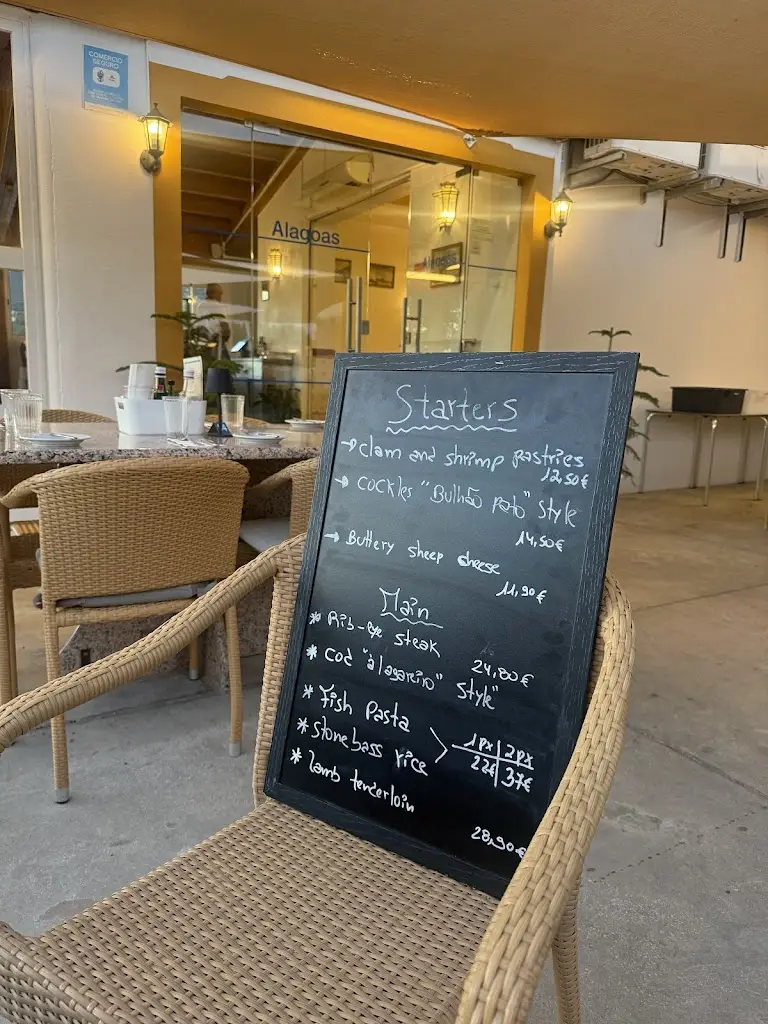 COMERCIO
SEGURO
Alagoas
Starters
→ clam and shrimp pastries
12,50€
→ cockles "Bulhão pato" style
14,50€
→ Buttery sheep cheese
11,90€
Main
* Rib-eye steak
24,80€
* cod "à lagareiro" style"
* Fish Pasta
* stone bass rice
1px | 2px
22€ | 37€
* lamb tenderloin
28,90€